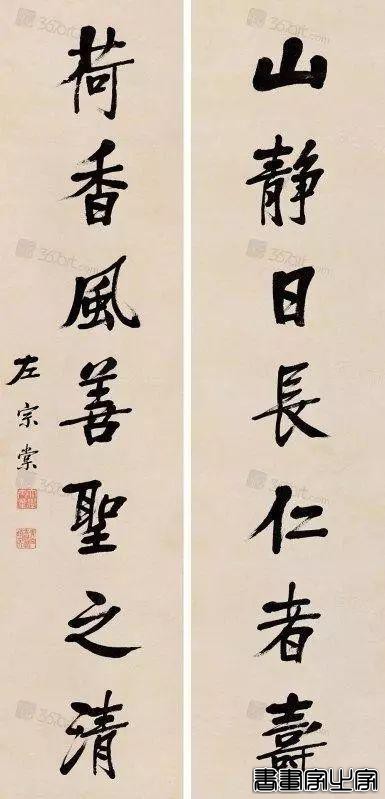 山静日長仁者壽
荷香風善聖之清
左宗棠
書畫家之家